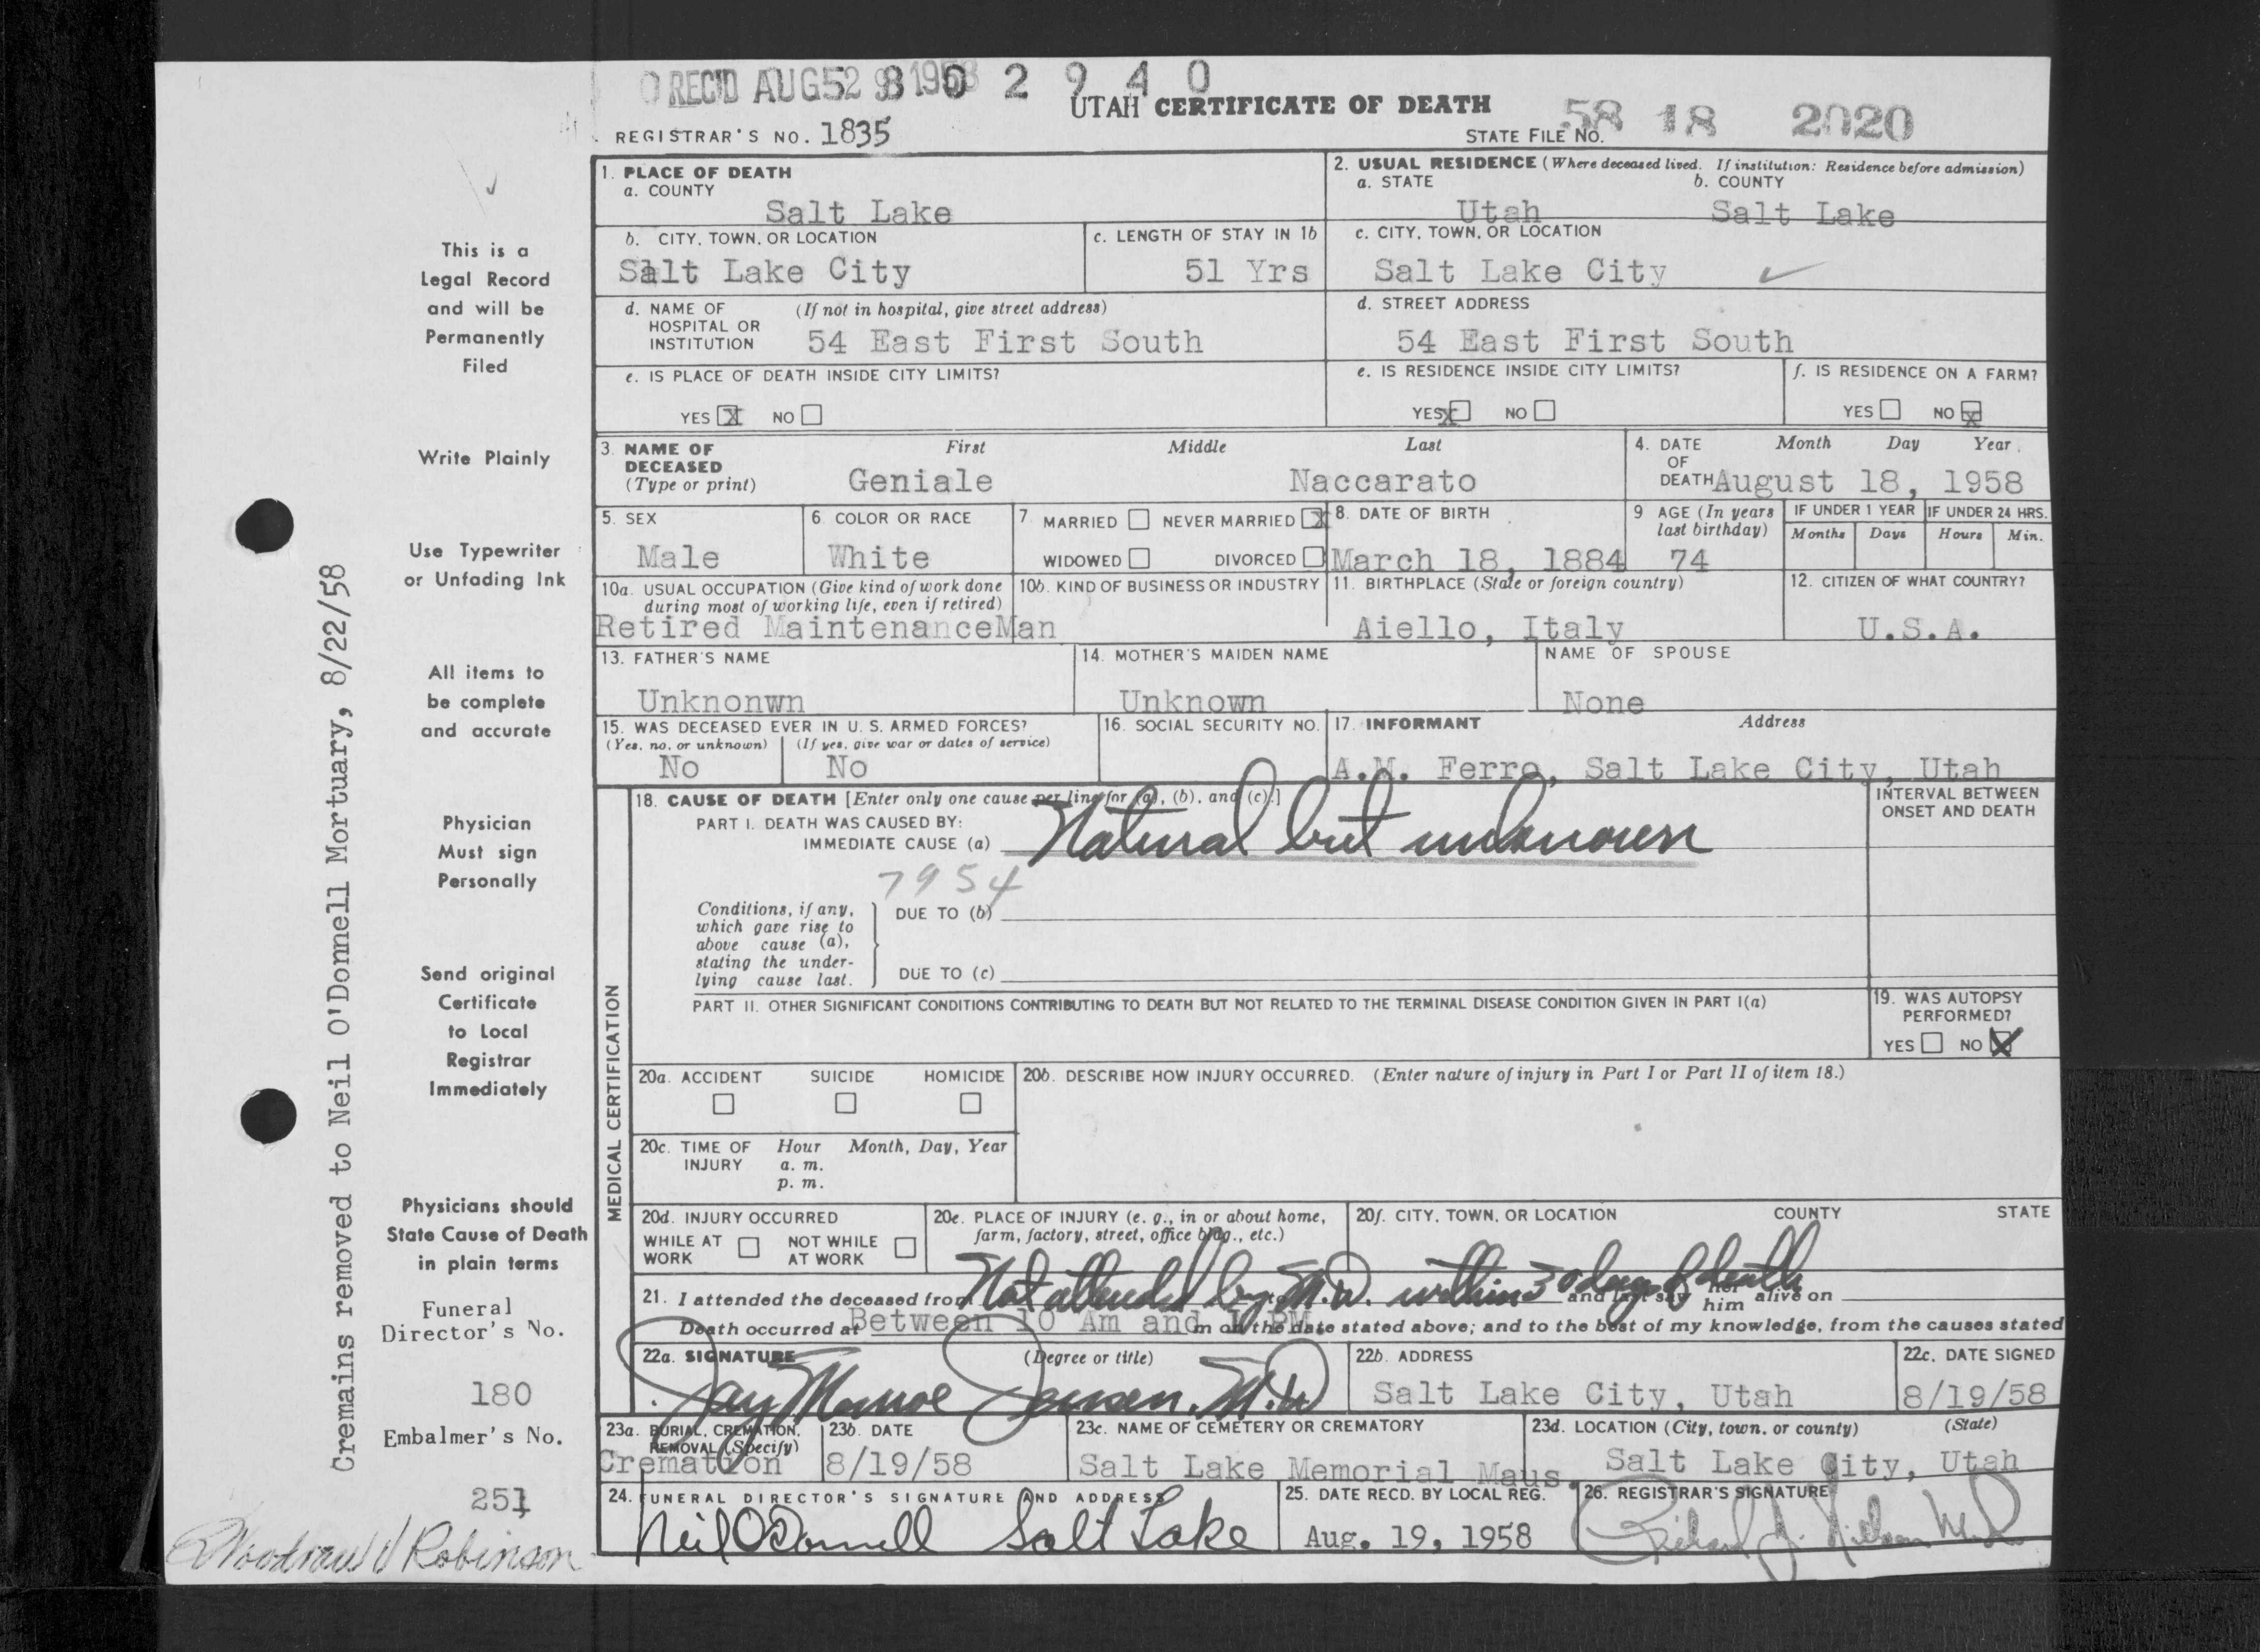 REC'D AUG 2 8 1958
52 8 0 2 9 4 0
UTAH CERTIFICATE OF DEATH
REGISTRAR'S NO. 1835
STATE FILE NO. 58 18 2020
1. PLACE OF DEATH
a. COUNTY
Salt Lake
2. USUAL RESIDENCE (Where deceased lived. If institution: Residence before admission)
a. STATE b. COUNTY
Utah Salt Lake
b. CITY, TOWN, OR LOCATION
Salt Lake City
c. LENGTH OF STAY IN 1b
51 Yrs
c. CITY, TOWN, OR LOCATION
Salt Lake City
d. NAME OF HOSPITAL OR INSTITUTION (If not in hospital, give street address)
54 East First South
d. STREET ADDRESS
54 East First South
e. IS PLACE OF DEATH INSIDE CITY LIMITS?
YES X NO
e. IS RESIDENCE INSIDE CITY LIMITS?
YES X NO
f. IS RESIDENCE ON A FARM?
YES NO X
3. NAME OF DECEASED (Type or print)
First Middle Last
Geniale Naccarato
4. DATE OF DEATH Month Day Year
August 18, 1958
5. SEX
Male
6. COLOR OR RACE
White
7. MARRIED NEVER MARRIED X
WIDOWED DIVORCED
8. DATE OF BIRTH
March 18, 1884
9 AGE (In years last birthday)
74
IF UNDER 1 YEAR
Months Days
IF UNDER 24 HRS.
Hours Min.
10a. USUAL OCCUPATION (Give kind of work done during most of working life, even if retired)
Retired MaintenanceMan
10b. KIND OF BUSINESS OR INDUSTRY
11. BIRTHPLACE (State or foreign country)
Aiello, Italy
12. CITIZEN OF WHAT COUNTRY?
U.S.A.
13. FATHER'S NAME
Unknonwn
14. MOTHER'S MAIDEN NAME
Unknown
NAME OF SPOUSE
None
15. WAS DECEASED EVER IN U. S. ARMED FORCES?
(Yes, no, or unknown) (If yes, give war or dates of service)
No No
16. SOCIAL SECURITY NO.
17. INFORMANT Address
A.M. Ferro, Salt Lake City, Utah
MEDICAL CERTIFICATION
18. CAUSE OF DEATH [Enter only one cause per line for (a), (b), and (c).]
PART I. DEATH WAS CAUSED BY:
IMMEDIATE CAUSE (a) Natural but unknown
INTERVAL BETWEEN ONSET AND DEATH
7954
Conditions, if any, which gave rise to above cause (a), stating the underlying cause last.
DUE TO (b)
DUE TO (c)
PART II. OTHER SIGNIFICANT CONDITIONS CONTRIBUTING TO DEATH BUT NOT RELATED TO THE TERMINAL DISEASE CONDITION GIVEN IN PART I(a)
19. WAS AUTOPSY PERFORMED?
YES NO X
20a. ACCIDENT SUICIDE HOMICIDE
20b. DESCRIBE HOW INJURY OCCURRED. (Enter nature of injury in Part I or Part II of item 18.)
20c. TIME OF INJURY Hour Month, Day, Year
a. m.
p. m.
20d. INJURY OCCURRED
WHILE AT WORK NOT WHILE AT WORK
20e. PLACE OF INJURY (e. g., in or about home, farm, factory, street, office bldg., etc.)
20f. CITY, TOWN, OR LOCATION COUNTY STATE
Not attended by M.D. within 30 days of death
21. I attended the deceased from and last saw her him alive on
Death occurred at Between 10 Am and PM m on the date stated above; and to the best of my knowledge, from the causes stated
22a. SIGNATURE (Degree or title)
Jay Monroe Jensen. M.D
22b. ADDRESS
Salt Lake City, Utah
22c. DATE SIGNED
8/19/58
23a. BURIAL, CREMATION, REMOVAL (Specify)
Cremation
23b. DATE
8/19/58
23c. NAME OF CEMETERY OR CREMATORY
Salt Lake Memorial Maus.
23d. LOCATION (City, town, or county) (State)
Salt Lake City, Utah
24. FUNERAL DIRECTOR'S SIGNATURE AND ADDRESS
Neil O'Donnell Salt Lake
25. DATE RECD. BY LOCAL REG.
Aug. 19, 1958
26. REGISTRAR'S SIGNATURE
This is a
Legal Record
and will be
Permanently
Filed
Write Plainly
Use Typewriter
or Unfading Ink
All items to
be complete
and accurate
Physician
Must sign
Personally
Send original
Certificate
to Local
Registrar
Immediately
Physicians should
State Cause of Death
in plain terms
Funeral
Director's No.
180
Embalmer's No.
251
Woodrow V Robinson
Cremains removed to Neil O'Donnell Mortuary, 8/22/58